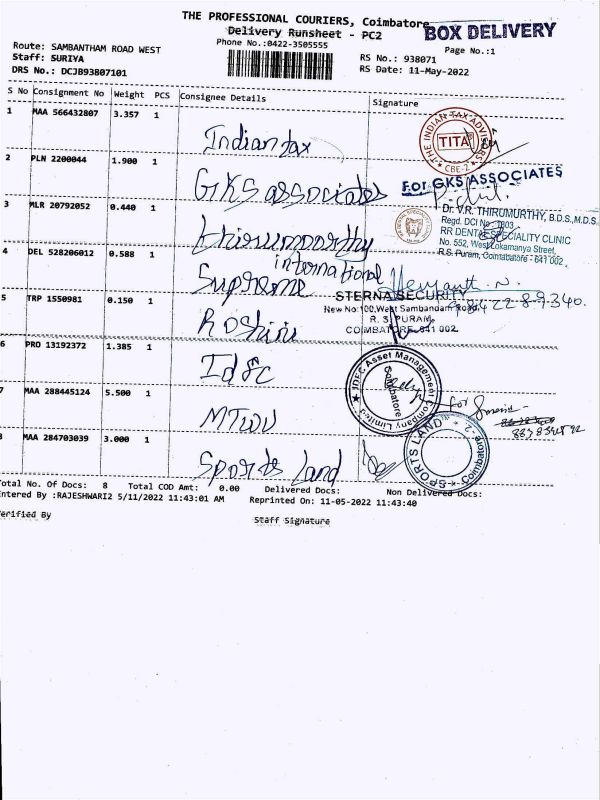 THE PROFESSIONAL COURIERS, Coimbatore
BOX DELIVERY
Delivery Runsheet - PC2
Phone No.:0422-3505555
Page No.:1
Route: SAMBANTHAM ROAD WEST
Staff: SURIYA
DRS No.: DCJB93807101
RS No.: 938071
RS Date: 11-May-2022
S No Consignment No Weight PCS Consignee Details Signature
1 MAA 566432807 3.357 1 Indian tax
THE INDIAN TAX ADVISERS TITA CBE-2
2 PLN 2200044 1.900 1 GKS associates
For GKS ASSOCIATES
3 MLR 20792052 0.440 1 thirumoorthy
Dr. V.R. THIRUMURTHY, B.D.S., M.D.S.
Regd. DCI No.
RR DENTAL SPECIALITY CLINIC
No. 552, West Lokamanya Street,
R.S. Puram, Coimbatore - 641 002
4 DEL 528206012 0.588 1 Supreme international
STERNA SECURITY
New No:100, West Sambandam Road,
R. S. PURAM,
COIMBATORE-641 002.
5 TRP 1550981 0.150 1 Roshini
6 PRO 13192372 1.385 1 Idfc
IDFC Asset Management Company Limited Coimbatore
7 MAA 288445124 5.500 1
for
8 MAA 284703039 3.000 1 Sports land
SPORTS LAND Coimbatore - 2
Total No. Of Docs: 8 Total COD Amt: 0.00 Delivered Docs: Non Delivered Docs:
Entered By :RAJESHWARI2 5/11/2022 11:43:01 AM Reprinted On: 11-05-2022 11:43:40
Verified By
Staff Signature